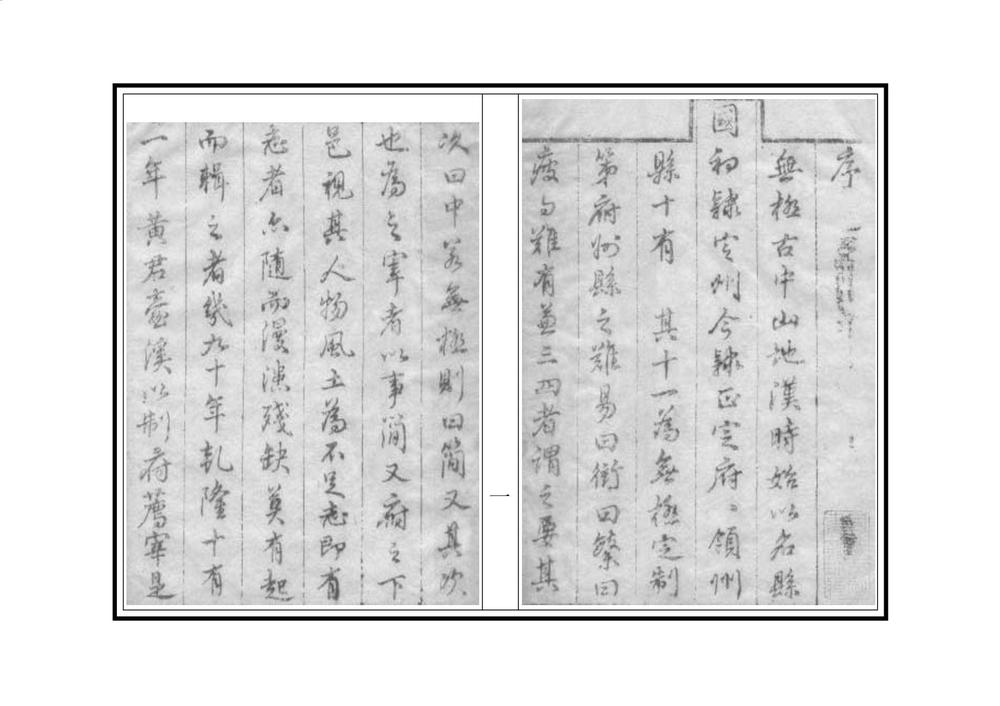 序
無極古中山地漢時始以名縣
國初隸定州今隸正定府〻領州
縣十有 其十一為無極定制
第府州縣之難易曰衝曰繁曰
疲曰難有兼三四者謂之要其
一
次曰中若無極則曰簡又其次
也為之宰者以事簡又府之下
邑視其人物風土為不足志即有
志者亦隨而漫漶殘缺莫有起
而輯之者幾九十年乾隆十有
一年黃君壺溪以制府薦宰是